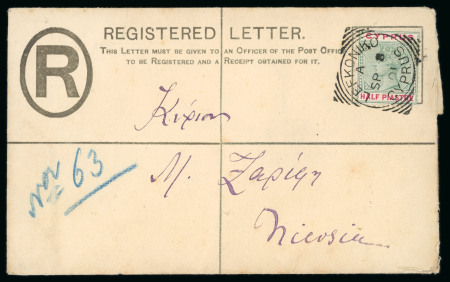 REGISTERED LETTER.
THIS LETTER MUST BE GIVEN TO AN OFFICER OF THE POST OFFICE
TO BE REGISTERED AND A RECEIPT OBTAINED FOR IT.
R
CYPRUS
HALF PIASTRE
LEFKONIKO
CYPRUS
A
SP 8
Κύριον
Μ. Ζαρίφη
63
Nicosia